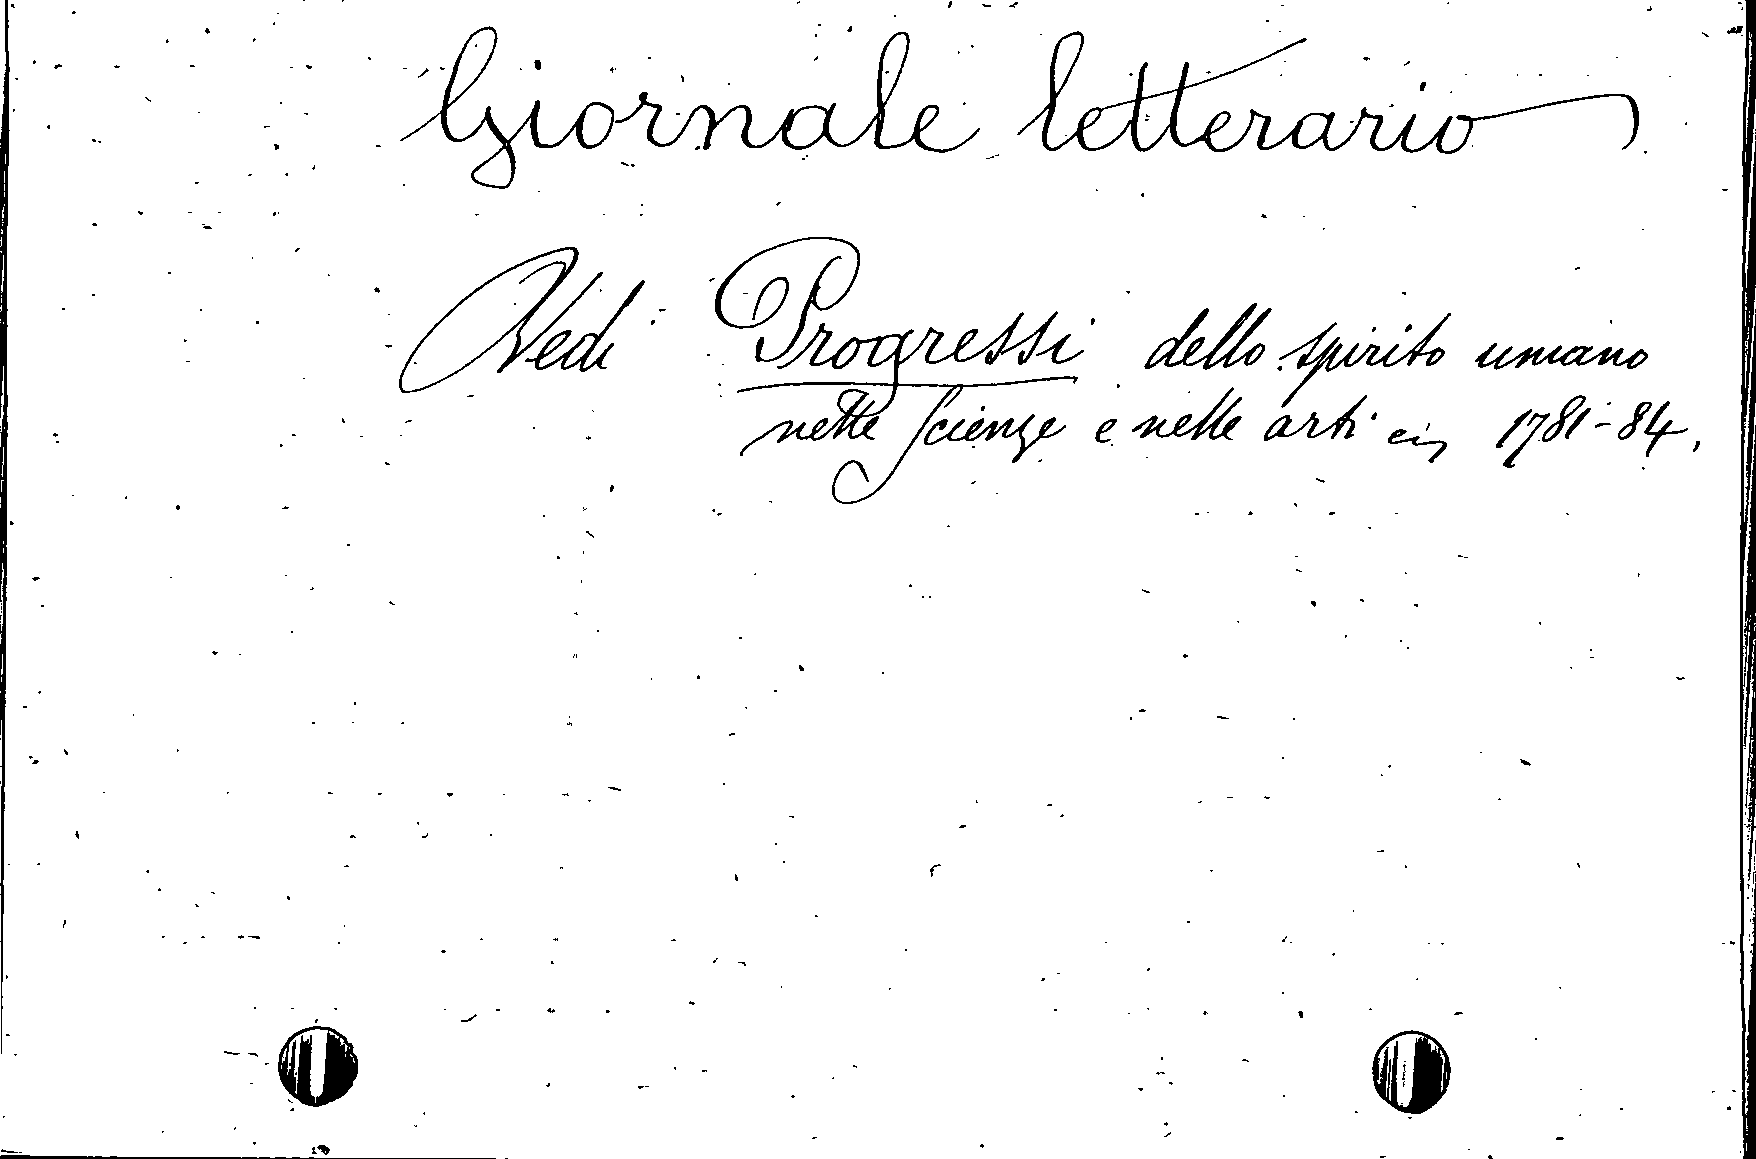 Giornale letterario
Vedi Progressi dello spirito umano
nelle scienze e nelle arti 1781-84.